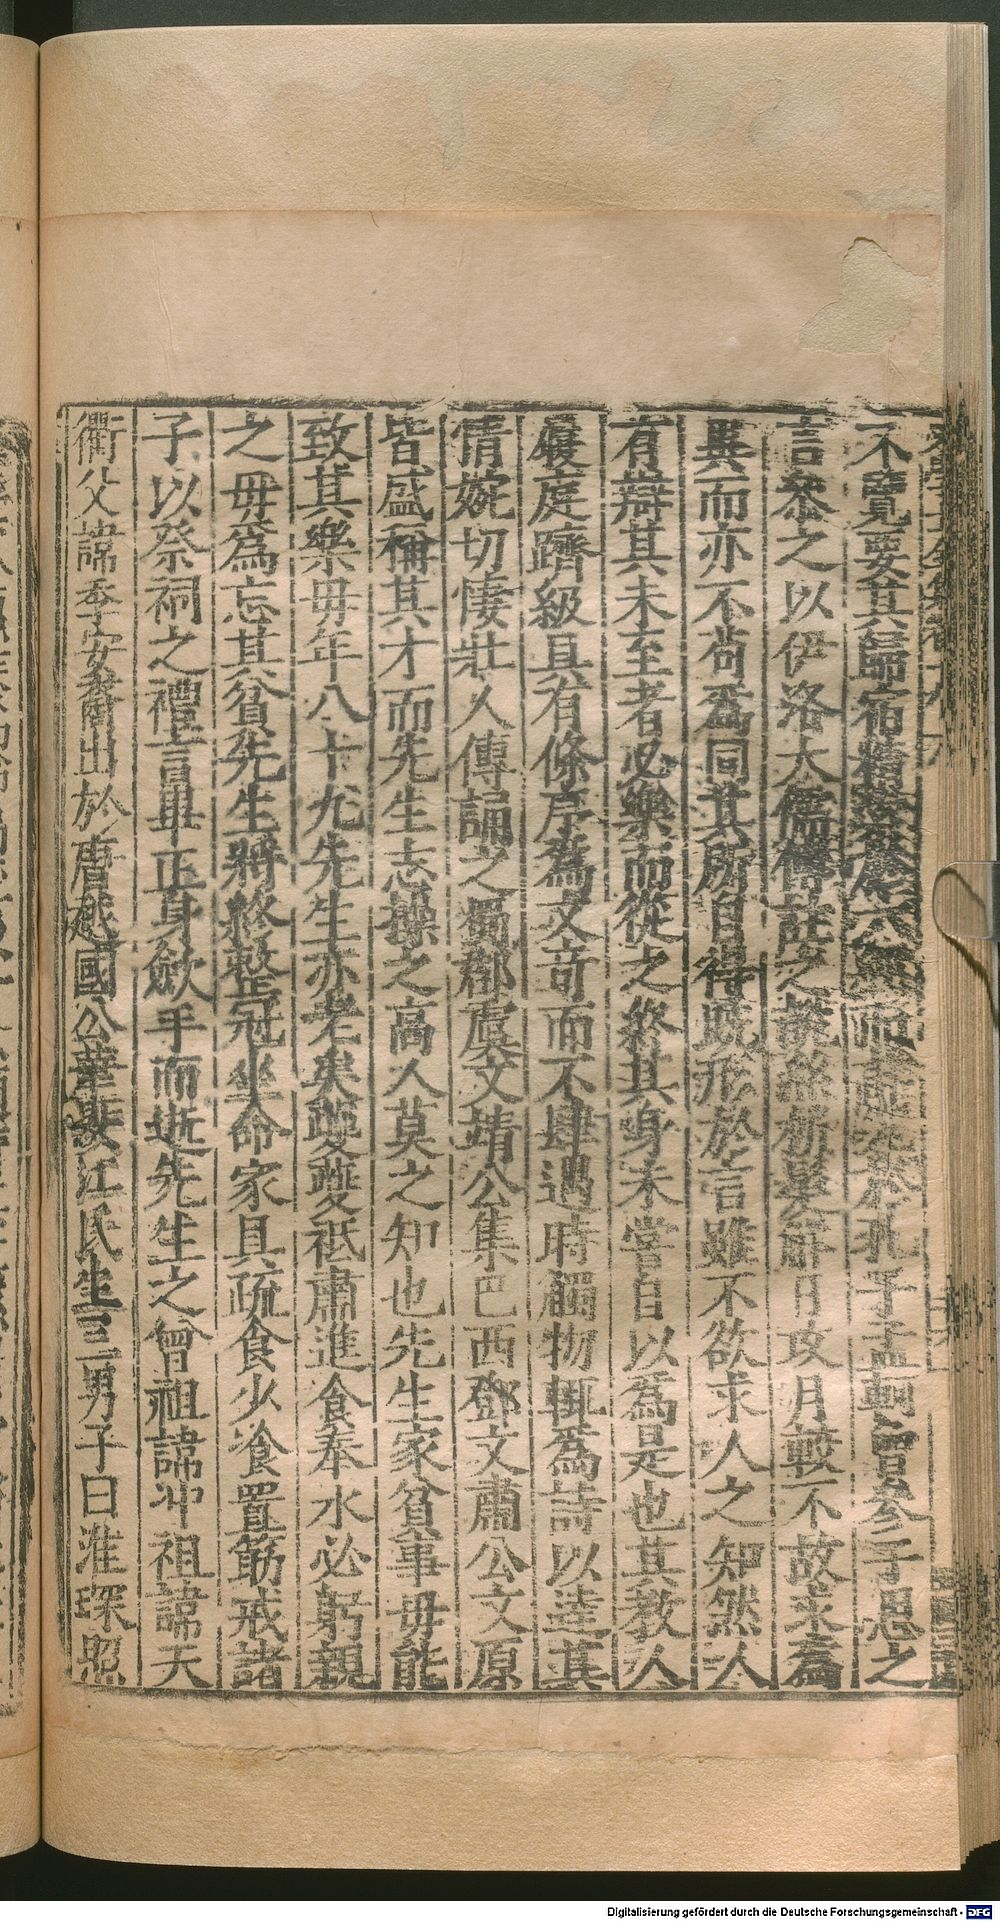 不覽要其歸宿精而孔子孟軻曾參子思之
言叅之以伊洛大儒傳註之日攻月較不故求為
異而亦不苟為同其所自得旣形於言雖不欲求人之知然人
有辯其未至者必樂而從之終其身未嘗自以為是也其教人
嚴庭躋級具有條序為文竒而不肆遇時觸物輒為詩以達其
情婉切悽壯人傳誦之獨郡虞文靖公集巴西鄧文肅公文原
皆盛稱其才而先生志操之高人莫之知也先生家貧事毋能
致其樂毋年八十九先生亦老矣夔夔祗肅進食奉水必躬親
之毋為忘其貧先生將終整冠坐命家具疏食少飡置筯戒諸
子以祭祠之禮言畢正身歛手而逝先生之曾祖諱冲祖諱天
衢父諱季安裔出於唐越國公華娶江氏生三男子曰淮琛照
Digitalisierung gefördert durch die Deutsche Forschungsgemeinschaft - DFG